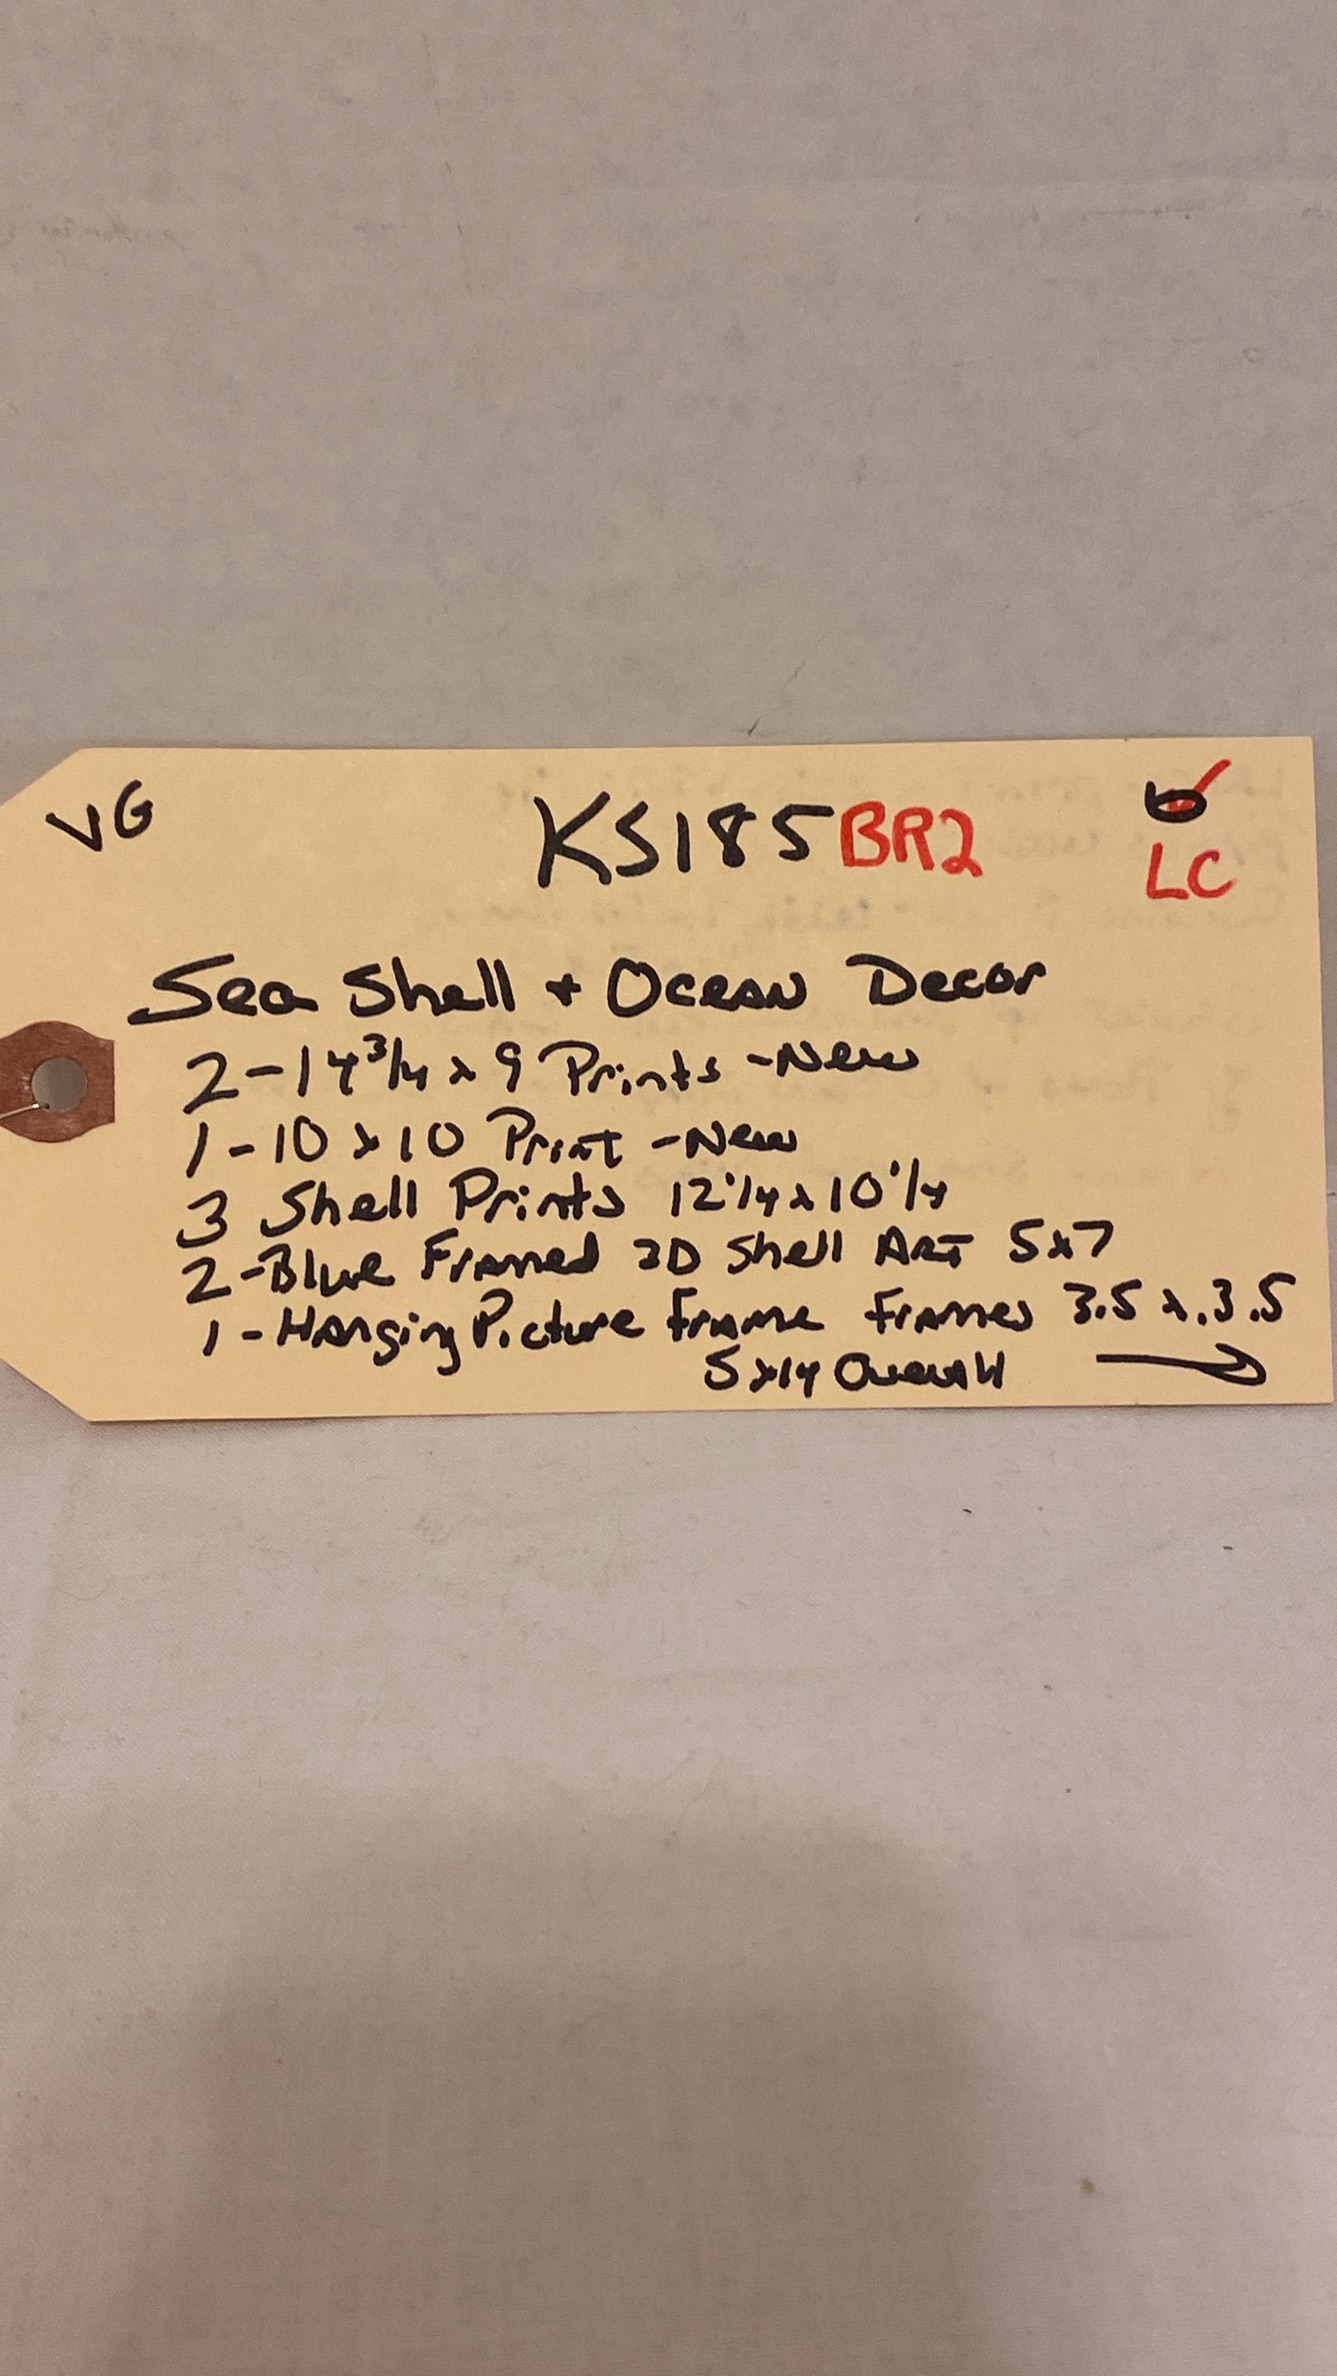 VG
KS185 BR2
LC
Sea Shell + Ocean Decor
2-14 3/4 x 9 Prints -New
1-10 x 10 Print -New
3 Shell Prints 12 1/4 x 10 1/4
2-Blue Framed 3D Shell Art 5x7
1-Hanging Picture Frame Frames 3.5 x 3.5
5x14 Overall